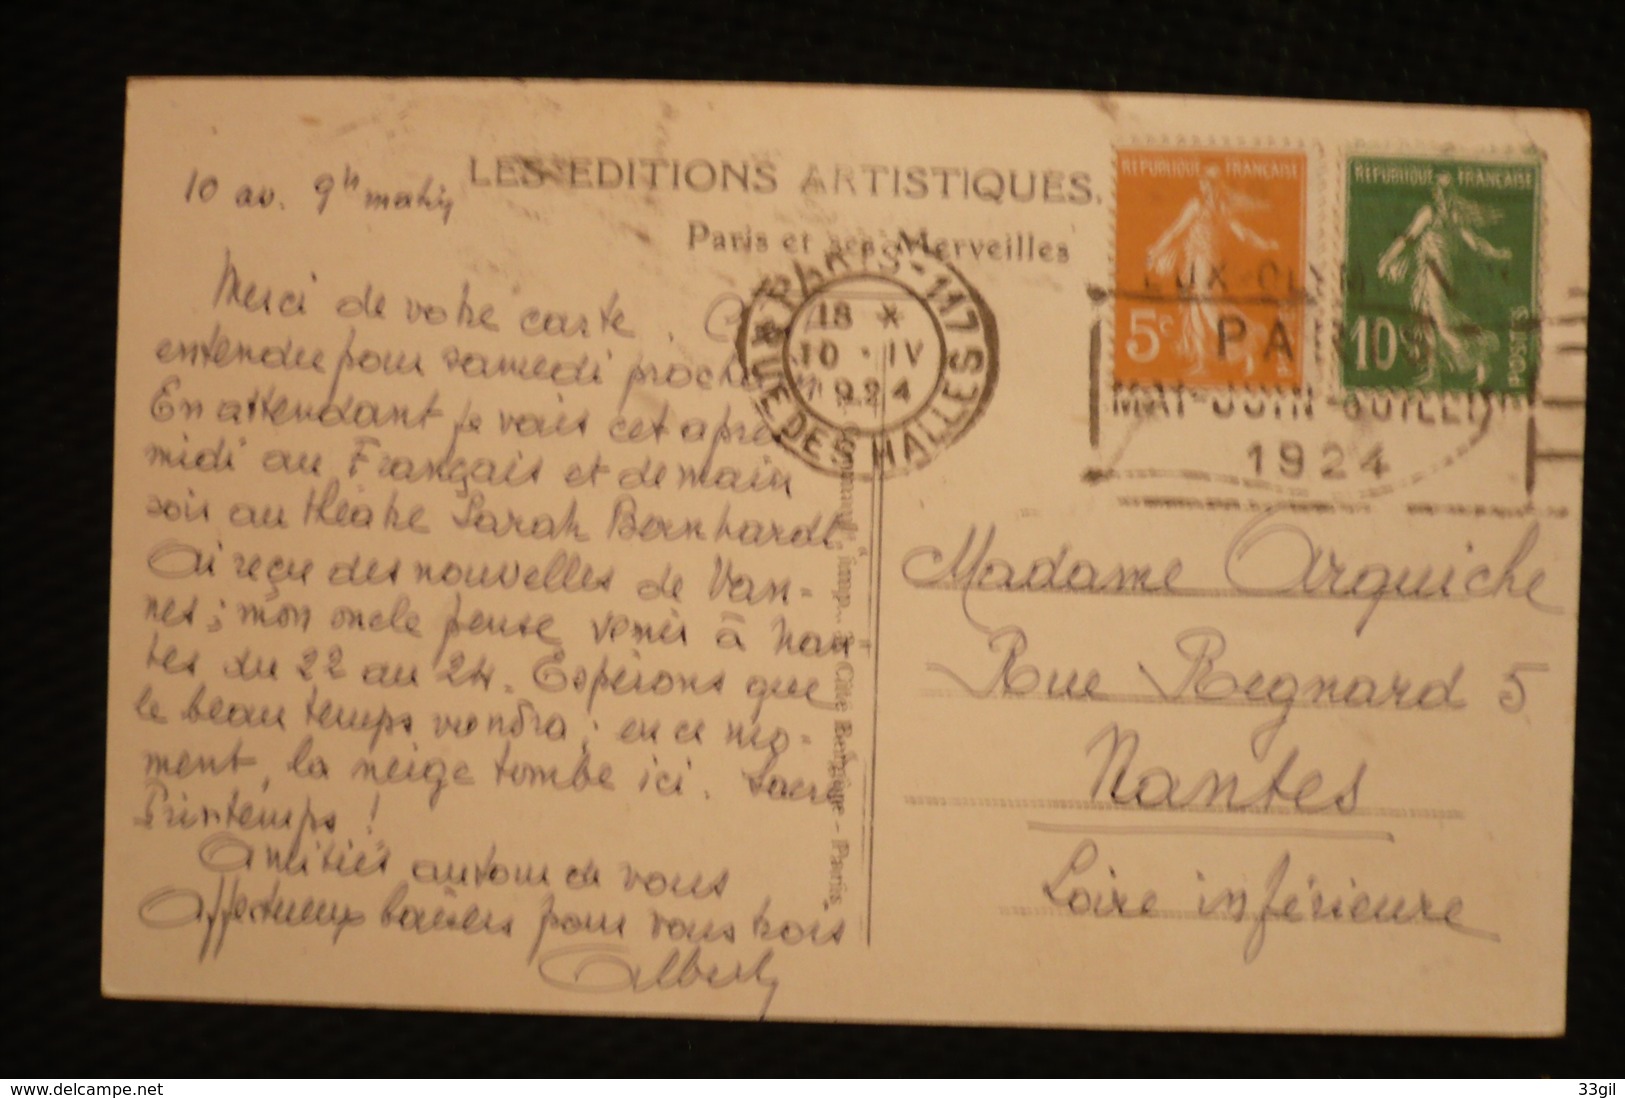 LES EDITIONS ARTISTIQUES.
Paris et ses Merveilles
10 av. 9h matin
Merci de votre carte. C
entendu pour samedi prochain
En attendant je vais cet après
midi au Français et demain
soir au théâtre Sarah Bernhardt
Ai reçu des nouvelles de Van-
nes ; mon oncle pense venir à Nan-
tes du 22 au 24. Espérons que
le beau temps viendra ; en ce mo-
ment, la neige tombe ici. Sacré
Printemps !
Amitiés autour de vous
Affectueux baisers pour vous trois
Albert
PARIS-117
18 *
10 - IV
1924
RUE DES HALLES
REPUBLIQUE FRANÇAISE
5c
REPUBLIQUE FRANÇAISE
10c
POSTES
JEUX OLYM
PARIS
MAI-JUIN-JUILLET
1924
Madame Arquiche
Rue Regnard 5
Nantes
Loire inférieure
imp., Cité Bergère - Paris
www.delcampe.net
33gil